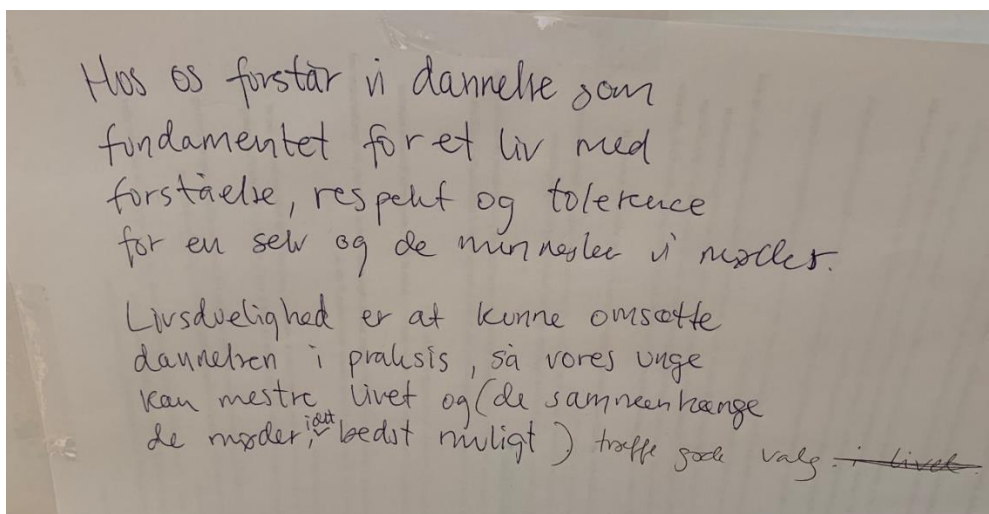 Hos os forstår vi dannelse som
fundamentet for et liv med
forståelse, respekt og tolerence
for en selv og de mennesker vi møder.
Livsduelighed er at kunne omsætte
dannelsen i praksis, så vores unge
kan mestre livet og (de sammenhænge
de møder, i det bedst muligt) træffe gode valg. i livet.